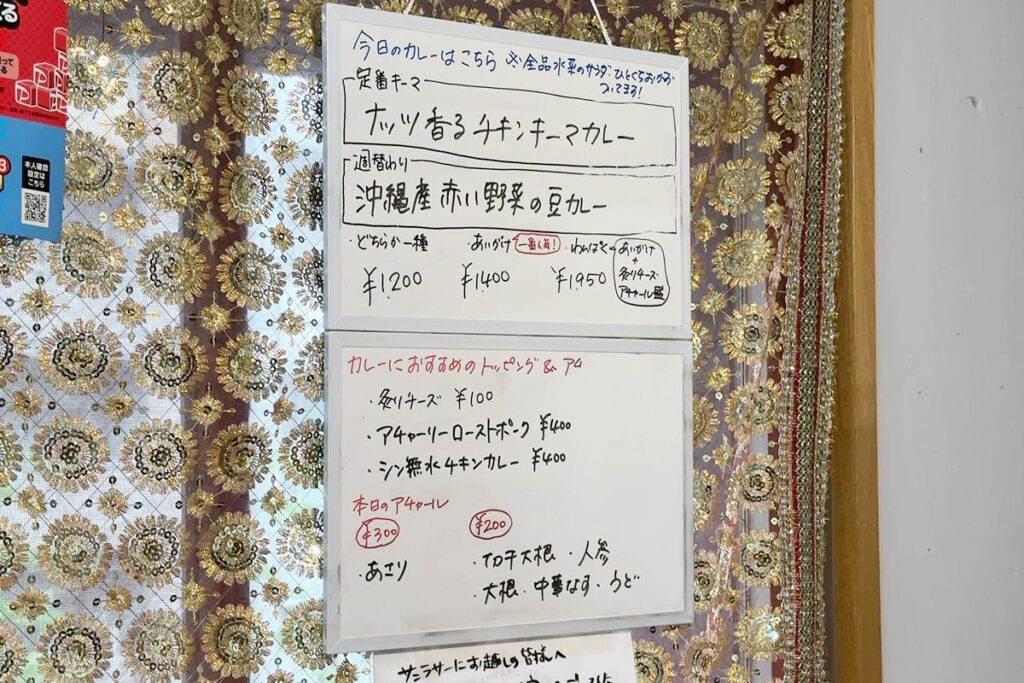 今日のカレーはこちら ※全品水菜のサラダ・ひとくちおかず
ついてます!
定番キーマ
ナッツ香るチキンキーマカレー
週替わり
沖縄産赤い野菜の豆カレー
・どちらか一種 ・あいがけ 一番人気! ・わんぱく
あいがけ
+
炙りチーズ
アチャール盛
¥1,200 ¥1,400 ¥1,950
カレーにおすすめのトッピング&アチ
・炙りチーズ ¥100
・アチャーリーローストポーク ¥400
・シン無水チキンカレー ¥400
本日のアチャール
¥300 ¥200
・あさり
・切干大根 ・人参
・大根・中華なす・うど
サニラサーにお越しの皆様へ
本人確認
設定は
こちら